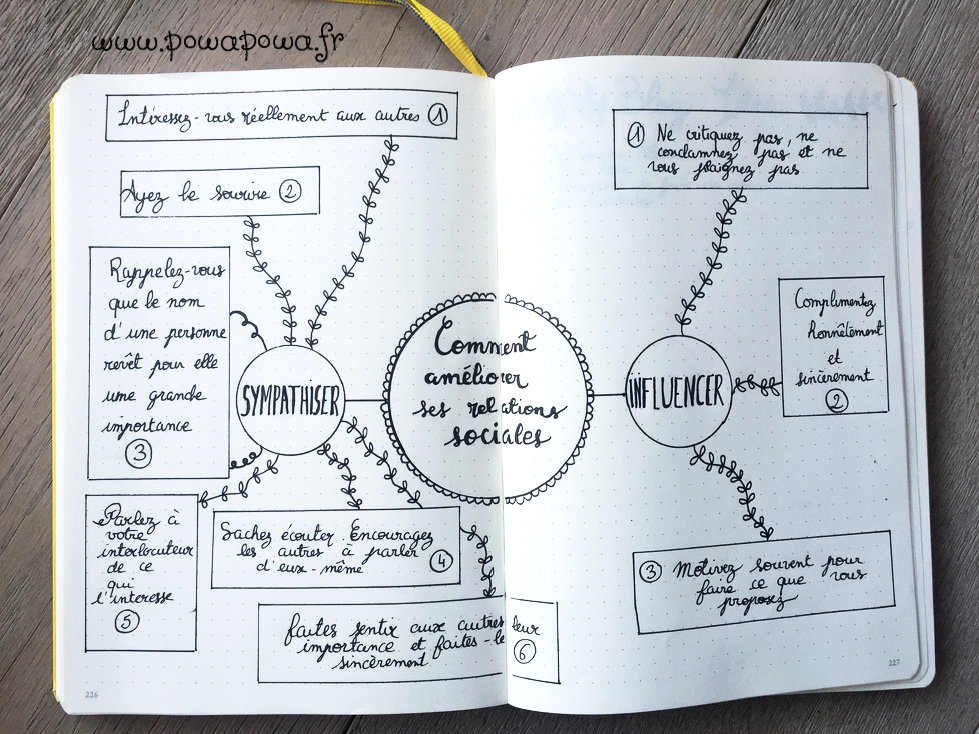 www.powapowa.fr
Intéressez-vous réellement aux autres 1
Ayez le sourire 2
Rappelez-vous
que le nom
d'une personne
revêt pour elle
une grande
importance
3
Parlez à
votre
interlocuteur
de ce
qui
l'interesse
5
SYMPATHISER
Sachez écouter. Encouragez
les autres à parler
d'eux-même
4
faites sentir aux autres leur
importance et faites-le
sincèrement.
6
Comment
améliorer
ses relations
sociales
INFLUENCER
1 Ne critiquez pas, ne
condamnez pas et ne
vous plaignez pas
Complimentez
honnêtement
et
sincèrement
2
3 Motivez souvent pour
faire ce que vous
proposez
226
227